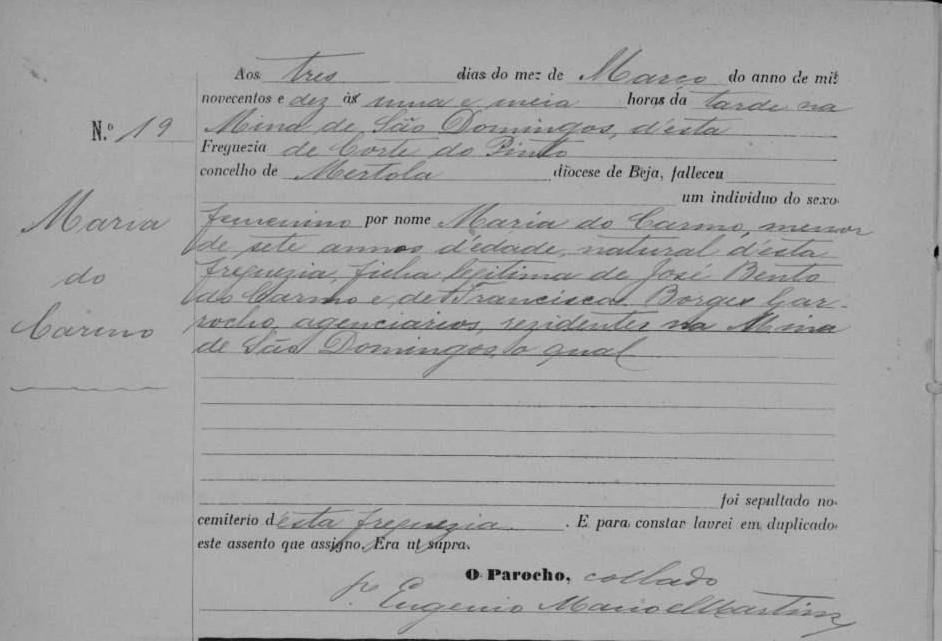 Aos tres dias do mez de Março do anno de mil
novecentos e dez ás uma e meia horas da tarde na
N.º 19
Mina de São Domingos, d'esta
Freguezia de Corte do Pinto
concelho de Mertola diocese de Beja, falleceu
um individuo do sexo
Maria
do
Carmo
femenino por nome Maria do Carmo, menor
de sete annos d'edade, natural d'esta
freguezia, filha legitima de José Bento
do Carmo e de Francisca Borges Gar-
rocho, agenciarios, rezidentes na Mina
de São Domingos, o qual
foi sepultado no
cemiterio d'esta freguezia. E para constar lavrei em duplicado
este assento que assigno. Era ut supra.
O Parocho, collado
P.e Eugenio Manoel Martins